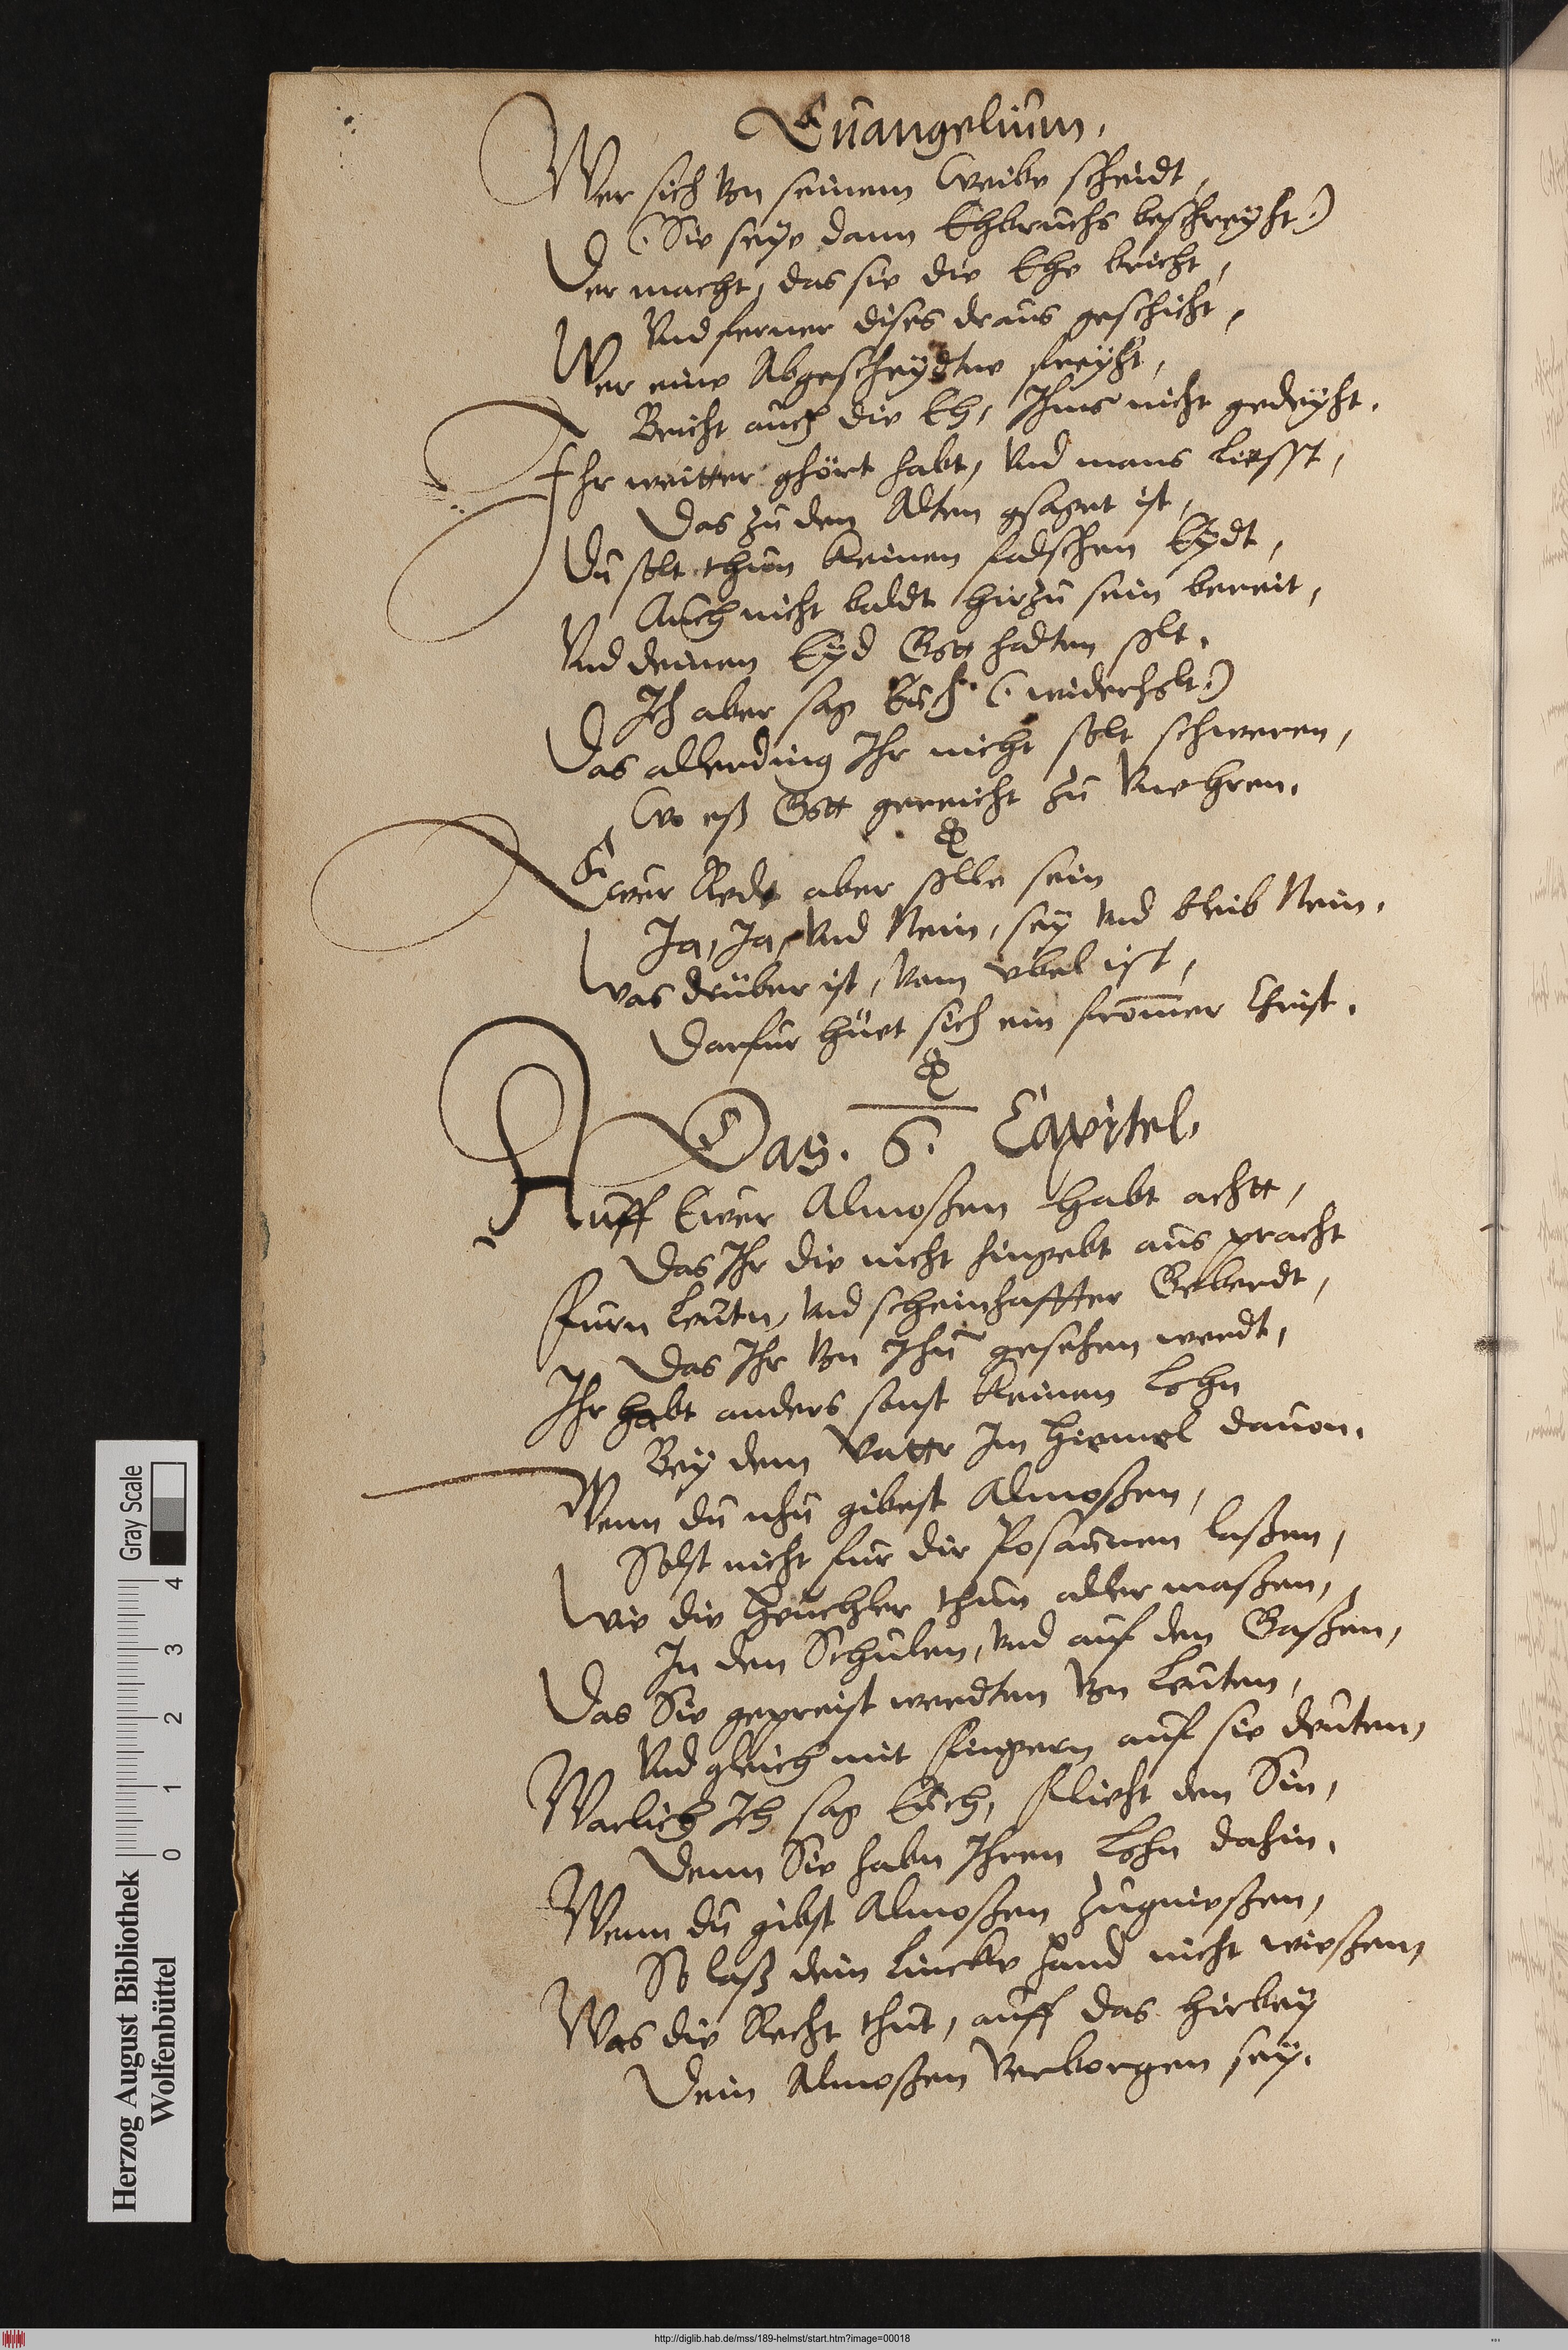 Euangelium.
Wer sich von seinem Weibe scheidt,
(: Sie seye dann Ehbruchs beschreyht :)
Der macht, das sie die Ehe bricht,
Vnd ferner dises draus geschicht,
Wer eine Abgescheydtne freyht,
Bricht auch die Eh, Ihms nicht gedeyht.
Ihr weitter ghört habt, vnd mans liesst,
Das zu den Alten gsaget ist,
Du solt thun keinen falschen Eydt,
Auch nicht baldt hirzu sein bereit,
Vnd deinen Eyd Gott halten solt.
Ich aber sag Euch (: widerholt :)
Das allerding Ihr nicht solt schweren,
Wo eß Gott gereicht zu Vnehren.
Ewer Rede aber solle sein
Ja, Ja, vnd Nein, sey vnd bleib Nein.
Was drüber ist, vom vbel ist,
Darfur hüet sich ein from̄er Christ.
Das. 6. Capitel.
Auff Ewer Almoßen habt achtt,
Das Ihr die nicht hingebt aus pracht
Furn Leutn, vnd scheinhaffter Geberdt,
Das Ihr von Ihn gesehen werdt,
Ihr habt anders sonst keinen Lohn
Bey dem Vattr Im Himel dauon.
Wenn du nhu gibest Almoßen,
Solst nicht fur dir Posaunen laßen,
Wie die Heuchler thun aller maßen,
In den Schulen, vnd auf den Gaßen,
Das Sie gepreist werdten von Leuten,
Vnd gleich mit fingern auf sie deuten,
Warlich Ich sag Euch, flieht den Sin,
Denn Sie habn Ihren Lohn dahin.
Wenn du gibst Almoßen zugnießen,
So laß dein Lincke Hand nicht wießen,
Was die Recht thut, auff das hirbey
Dein Almoßen verborgen sey.
Herzog August Bibliothek
Wolfenbüttel
0 1 2 3 4
Gray Scale
http://diglib.hab.de/mss/189-helmst/start.htm?image=00018